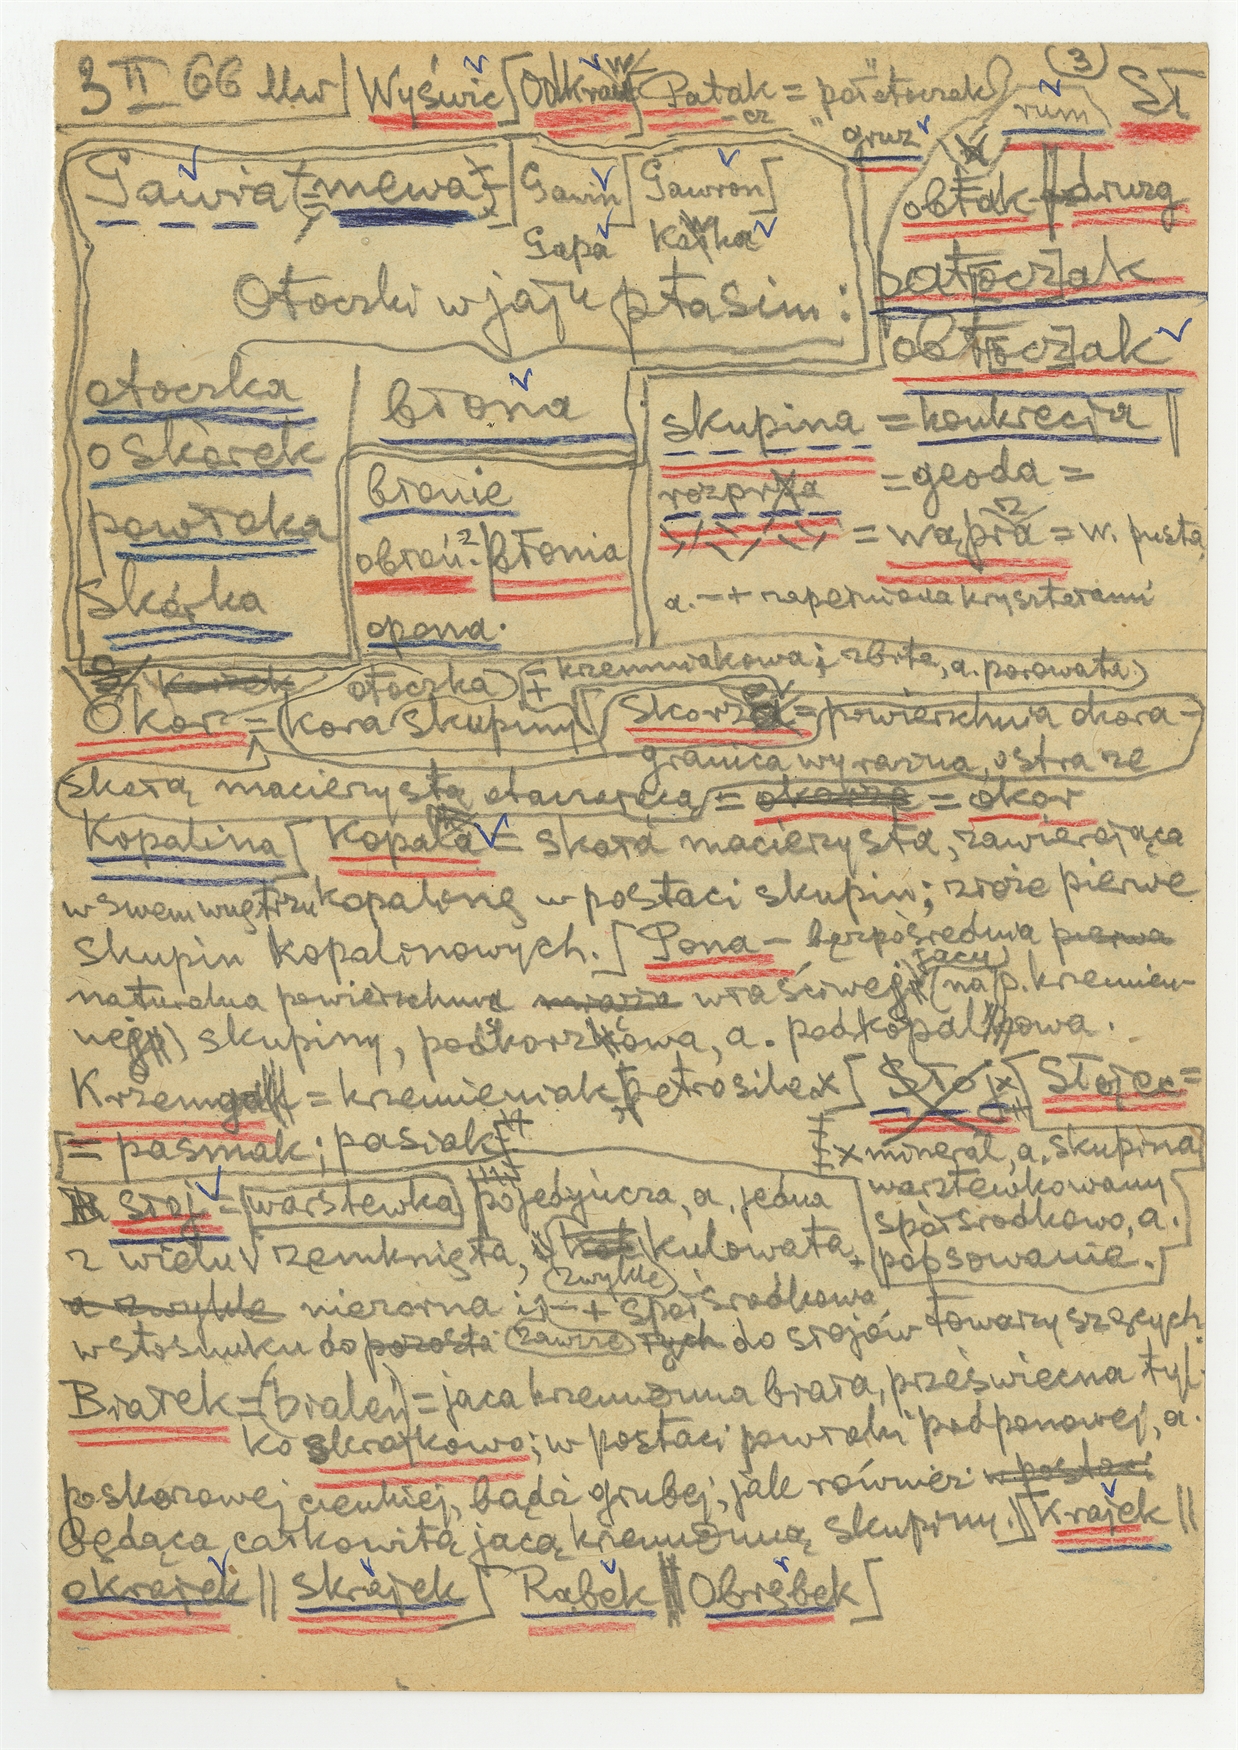 3 II 66 Mw | Wyświć [ Odkraw Patak = "patoczak" rum (3) St
-cz gruz
Gawia (= mewa) | Gawin [ Gawron ]
Gapa Kawka
obłak || druzg
Otoczki w jaju ptasim :
patoczak
obtoczak
otoczka
oskórek
powłoka
skórka
błona
błonie
obłoń. błonia
opona.
skupina = konkrecja ||
rozprza = geoda =
= wąpra = w. pusta
a. -+ zapełniona kryształami
otoczka) (+ krzemniakowa; zbita, a. porowata)
Okor = (kora skupiny) [ Skorza = powierzchnia okora-
granica wyraźna, ostra ze
skałą macierzystą otaczającą = okorze = okor
Kopalina [ Kopala = skała macierzysta, zawierająca
w swem wnętrzu kopalinę w postaci skupin; złoże pierwe
skupin kopalinowych. [ Pona - bezpośrednia pierwa
naturalna powierzchnia miazia właściwej jacy (na p. krzemien-
nej) skupiny, podskorzowa, a. podkopalowa.
Krzemgal = krzemieniak, petrosilex [ Słoj x [ Słojec =
= pasmak; pasiak
x minerał, a. skupina
warstewkowany
spółśrodkowo, a.
popsowanie.
słoj = warstewka pojedyńcza, a. jedna
z wielu zemknięta, kulowata,
(zwykle)
a zwykle niezorna i -+ spółśrodkowa
w stosunku do pozosta (zawsze) łych do słojów towarzyszących
Białek = (bialeń) = jaca krzemionna biała, przeświecna tyl-
ko skrajkowo; w postaci powłoki podponowej, a.
poskorowej cienkiej, bądź grubej, jak również w postaci
będąca całkowitą jacą krzemionną skupiny. ] Krajek ||
okrajek || skrajek [ Rąbek || Obrębek ]